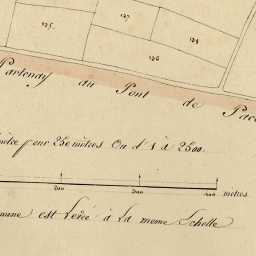 127
125.
128
126
Partenay au Pont de Pacé
mètre pour 250 mètres Ou d'1 à 2500.
200 300 400 mètres.
mune est Levée à La meme Echelle